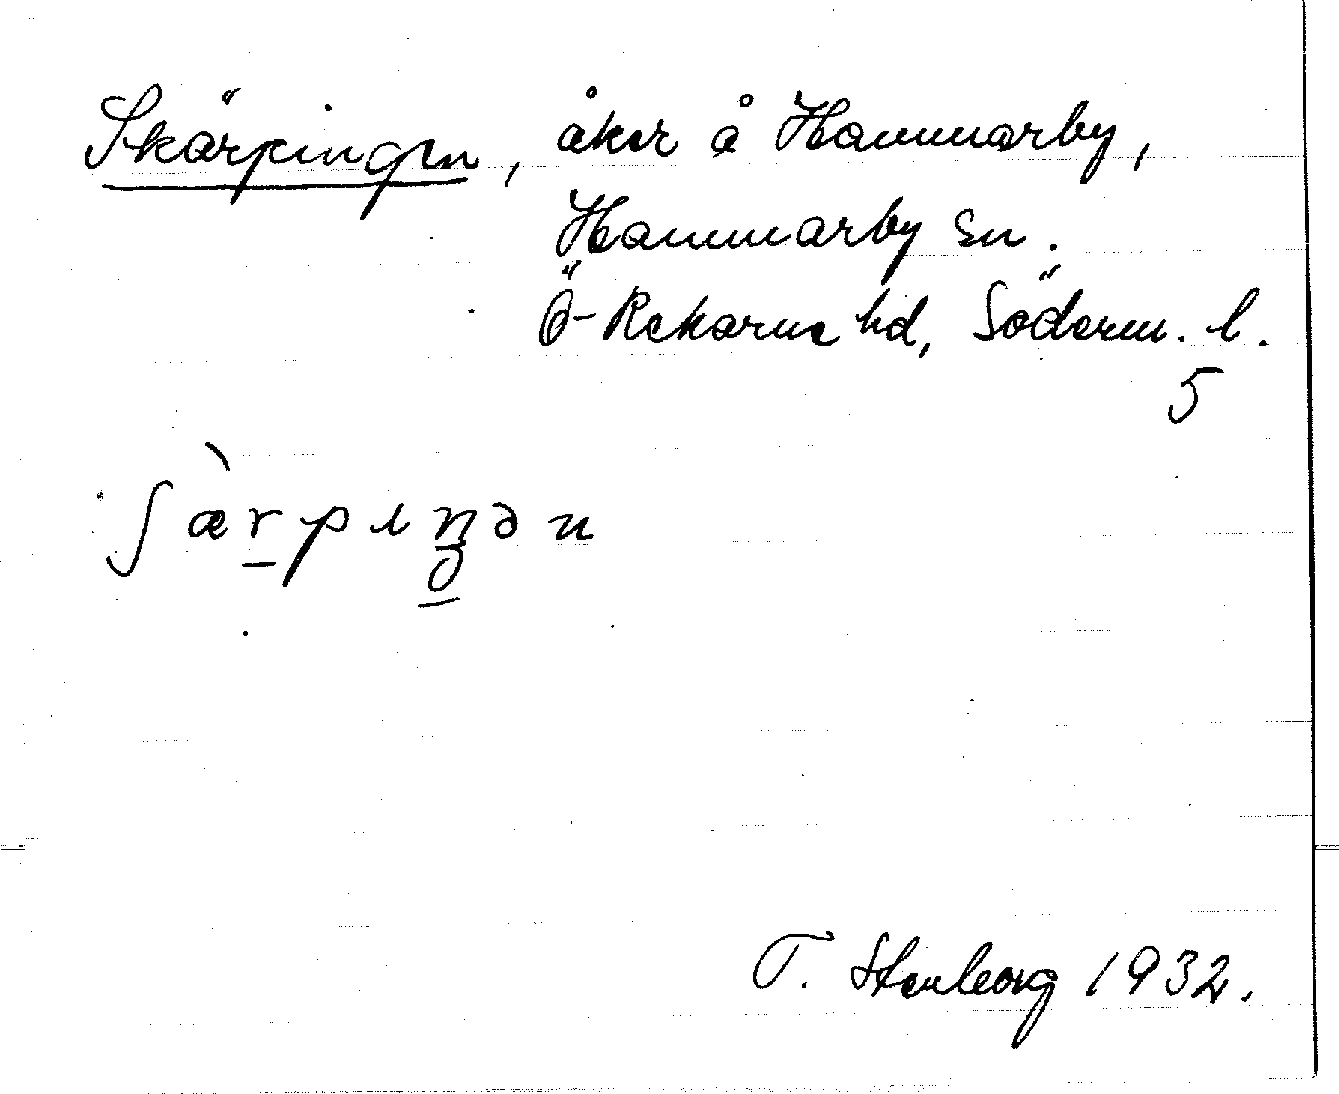 Skärpingen, åker å Hammarby,
Hammarby sn.
Ö-Rekarne hd, Söderm. l.
5
ʃæ̀r̠pɩŋən
T. Stenborg 1932.